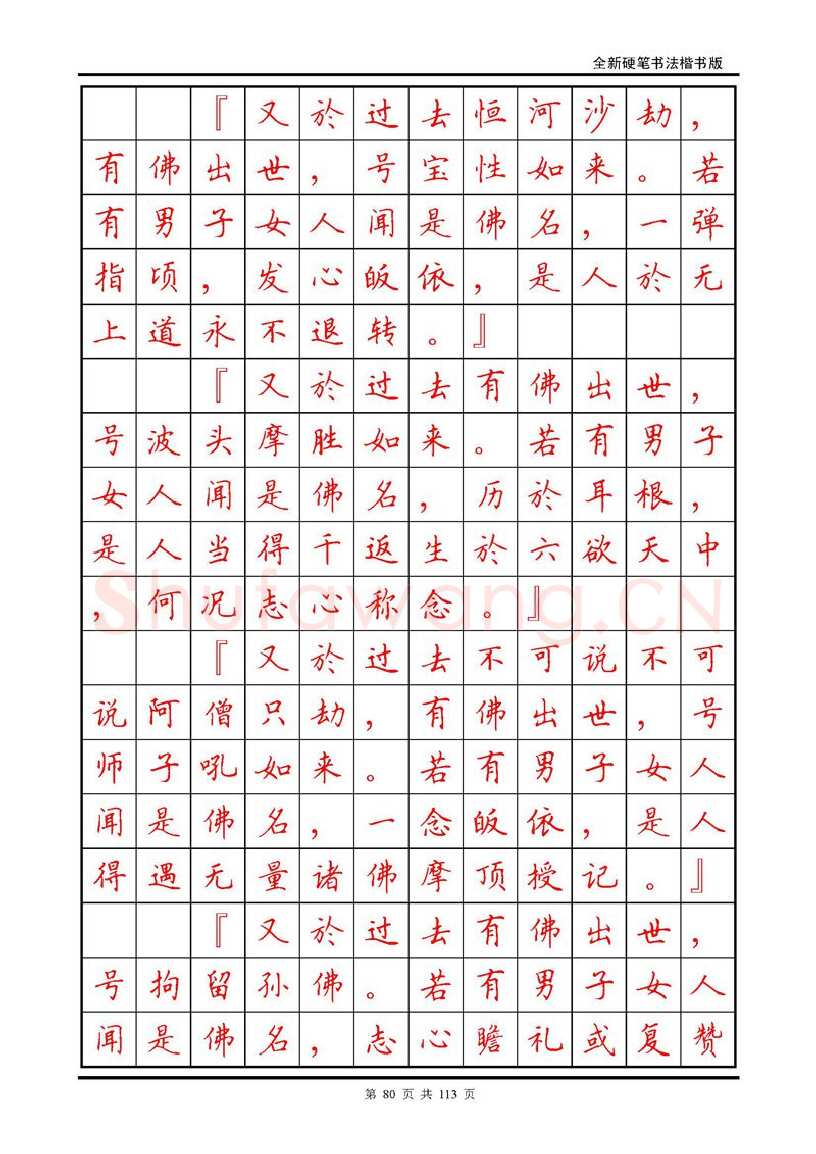 全新硬笔书法楷书版
『又於过去恒河沙劫，
有佛出世，号宝性如来。若
有男子女人闻是佛名，一弹
指顷，发心皈依，是人於无
上道永不退转。』
『又於过去有佛出世，
号波头摩胜如来。若有男子
女人闻是佛名，历於耳根，
是人当得千返生於六欲天中
，何况志心称念。』
『又於过去不可说不可
说阿僧只劫，有佛出世，号
师子吼如来。若有男子女人
闻是佛名，一念皈依，是人
得遇无量诸佛摩顶授记。』
『又於过去有佛出世，
号拘留孙佛。若有男子女人
闻是佛名，志心瞻礼或复赞
Shufawang.CN
第 80 页 共 113 页